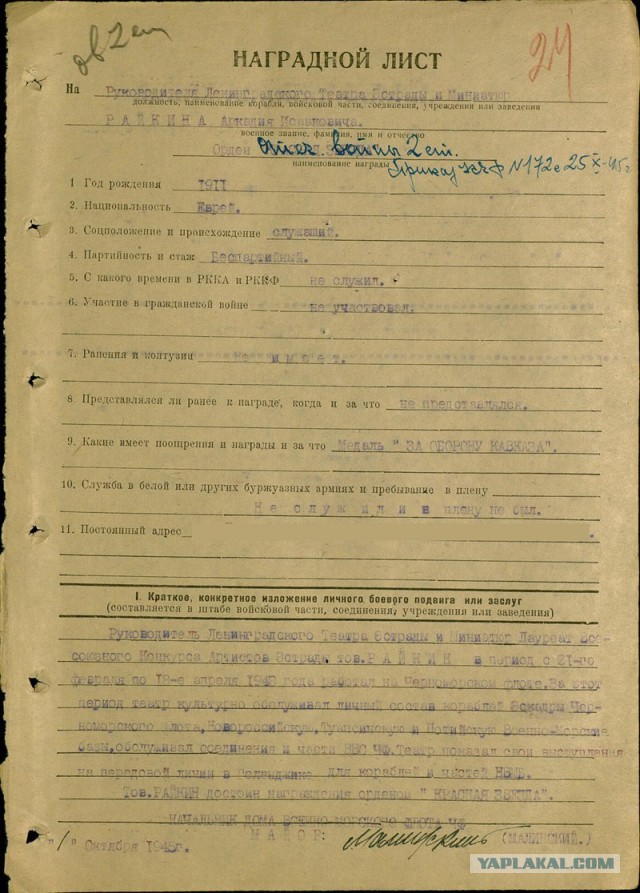 ов 2 ст
24
НАГРАДНОЙ ЛИСТ
На Руководителя Ленинградского Театра Эстрады и Миниатюр
должность, наименование корабля, войсковой части, соединения, учреждения или заведения
РАЙКИНА Аркадия Исааковича.
военное звание, фамилия, имя и отчество
Орден Отеч войны 2 ст.
наименование награды Приказ КЧФ N 172 с 25 X-45 г
1 Год рождения 1911
2. Национальность Еврей.
3. Соцположение и происхождение служащий.
4. Партийность и стаж Беспартийный.
5. С какого времени в РККА и РККФ не служил.
6. Участие в гражданской войне не участвовал.
7. Ранения и контузии не имеет.
8 Представлялся ли ранее к награде, когда и за что не представлялся.
9. Какие имеет поощрения и награды и за что Медаль " ЗА ОБОРОНУ КАВКАЗА".
10. Служба в белой или других буржуазных армиях и пребывание в плену
Не служил и в плену не был.
11. Постоянный адрес
I. Краткое, конкретное изложение личного боевого подвига или заслуг
(составляется в штабе войсковой части, соединения, учреждения или заведения)
Руководитель Ленинградского Театра Эстрады и Миниатюр Лауреат Все-
союзного Конкурса Артистов Эстрады тов.РАЙКИН в период с 21-го
февраля по 18-е апреля года работал на Черноморском флоте.За этот
период театр культурно обслуживал личный состав кораблей Эскадры Чер-
номорского флота,Новороссийскую,Туапсинскую и Потийскую Военно-Морские
базы,обслуживал соединения и части ВВС ЧФ.Театр показал свои выступления
на передовой линии в Геленджике для кораблей и частей НВМБ.
Тов.РАЙКИН достоин награждения орденом " КРАСНАЯ ЗВЕЗДА".
НАЧАЛЬНИК ДОМА ВОЕННО-МОРСКОГО ФЛОТА ЧФ
МАЙОР: (МАЛИНСКИЙ.)
"1" Октября 1945г.
YAPLAKAL.COM